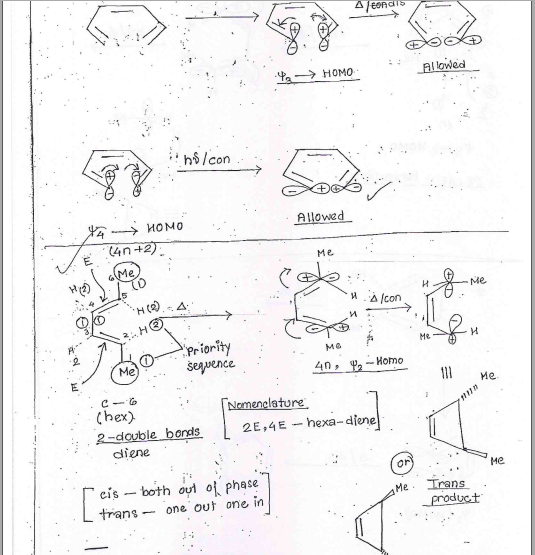 Δ/condis
Ψ₂ → HOMO
Allowed
hδ/con
Ψ₄ → HOMO
Allowed
(4n+2)
E
6
Me
(1)
5
H(2)
4
H(2)
1
1
3
H
2
H
2
2
1
Me
1
E
Δ
Priority
sequence
Me
H
H
Me
4n, Ψ₂-Homo
Δ/con
H
Me
Me
H
C-6
(hex)
2-double bonds
diene
Nomenclature
2E,4E - hexa-diene
Me
Me
Trans
product
or
Me
cis - both out of phase
trans - one out one in